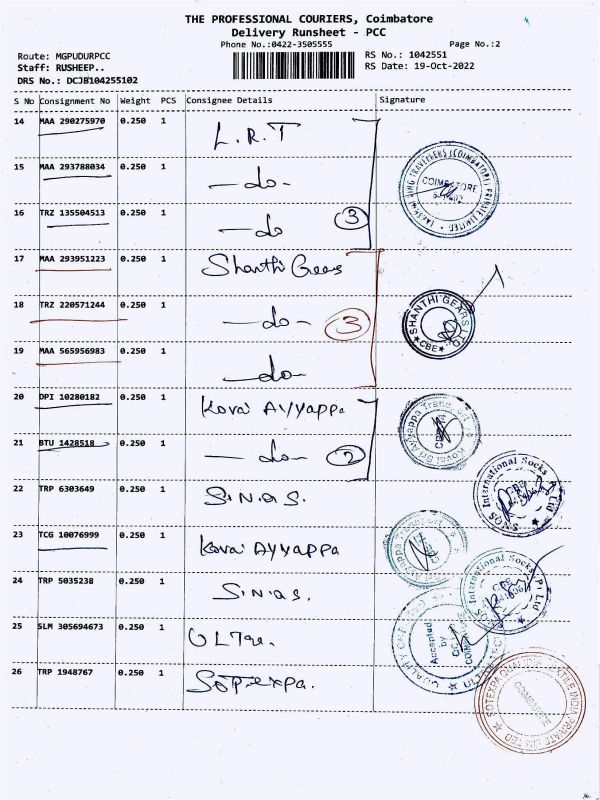 THE PROFESSIONAL COURIERS, Coimbatore
Delivery Runsheet - PCC
Phone No.:0422-3505555
Page No.:2
Route: MGPUDURPCC
RS No.: 1042551
Staff: RUSHEEP..
RS Date: 19-Oct-2022
DRS No.: DCJB104255102
S No Consignment No Weight PCS Consignee Details Signature
14 MAA 290275970 0.250 1 L.R.T
15 MAA 293788034 0.250 1 -do-
16 TRZ 135504513 0.250 1 -do 3
17 MAA 293951223 0.250 1 Shanthi Gears
18 TRZ 220571244 0.250 1 -do- 3
19 MAA 565956983 0.250 1 -do-
20 DPI 10280182 0.250 1 Kovai Ayyappa
21 BTU 1428518 0.250 1 -do- 2
22 TRP 6303649 0.250 1 S.N.Q.S.
23 TCG 10076999 0.250 1 Kovai Ayyappa
24 TRP 5035238 0.250 1 S.N.Q.S.
25 SLM 305694673 0.250 1
26 TRP 1948767 0.250 1 Sotexpa.
COIMBATORE
SHANTHI GEARS LTD
CBE
SNQS International Socks Pvt Ltd
International Socks Pvt Ltd
Accepted
by
SOTEXPA QUALITY TEXTILE INDIA PRIVATE LIMITED
COIMBATORE